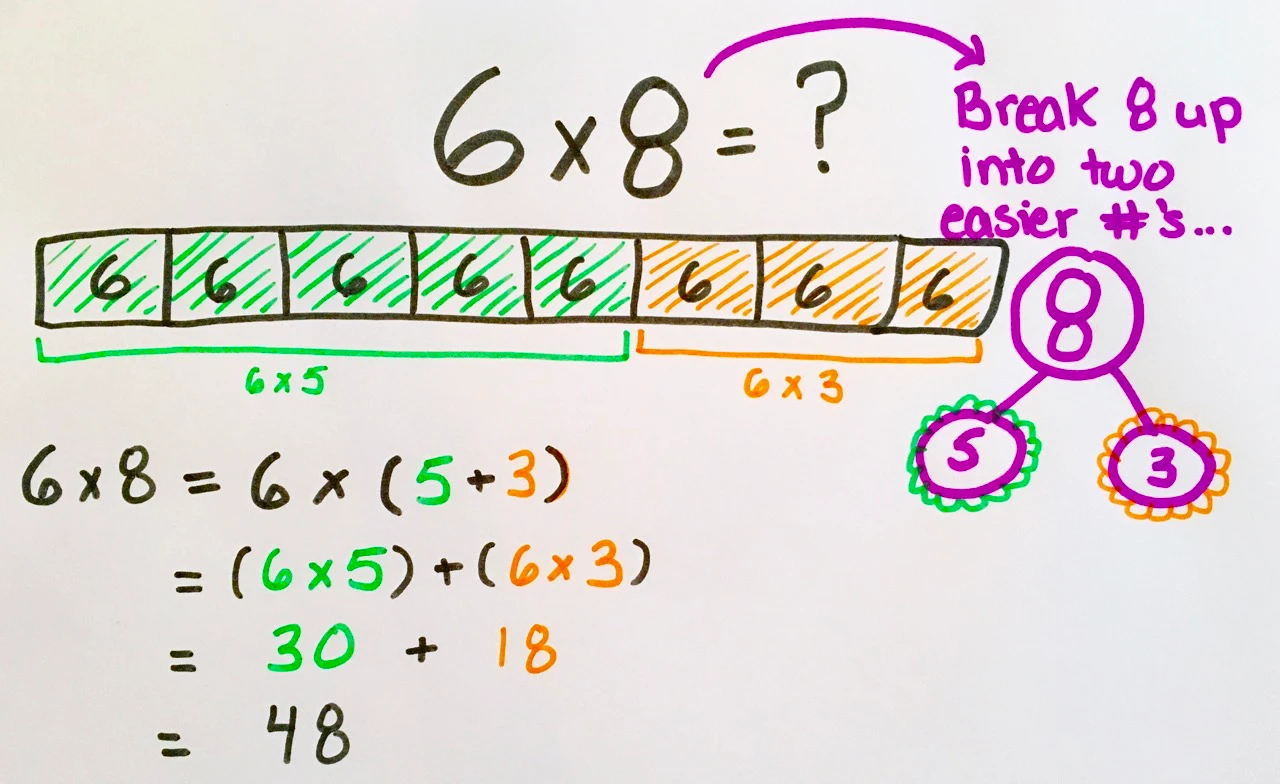 6 x 8 = ?
Break 8 up
into two
easier #'s...
6 6 6 6 6 6 6 6
8
6 x 5 6 x 3
5 3
6 x 8 = 6 x (5 + 3)
= (6 x 5) + (6 x 3)
= 30 + 18
= 48